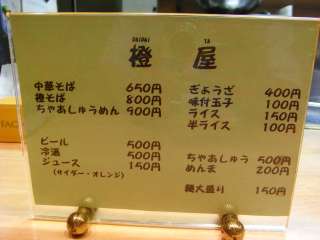 DAIDAI YA
橙 屋
中華そば 650円
橙そば 800円
ちゃあしゅうめん 900円
ビール 500円
冷酒 500円
ジュース 150円
(サイダー・オレンジ)
ぎょうざ 400円
味付玉子 100円
ライス 150円
半ライス 100円
ちゃあしゅう 500円
めんま 200円
麺大盛り 150円